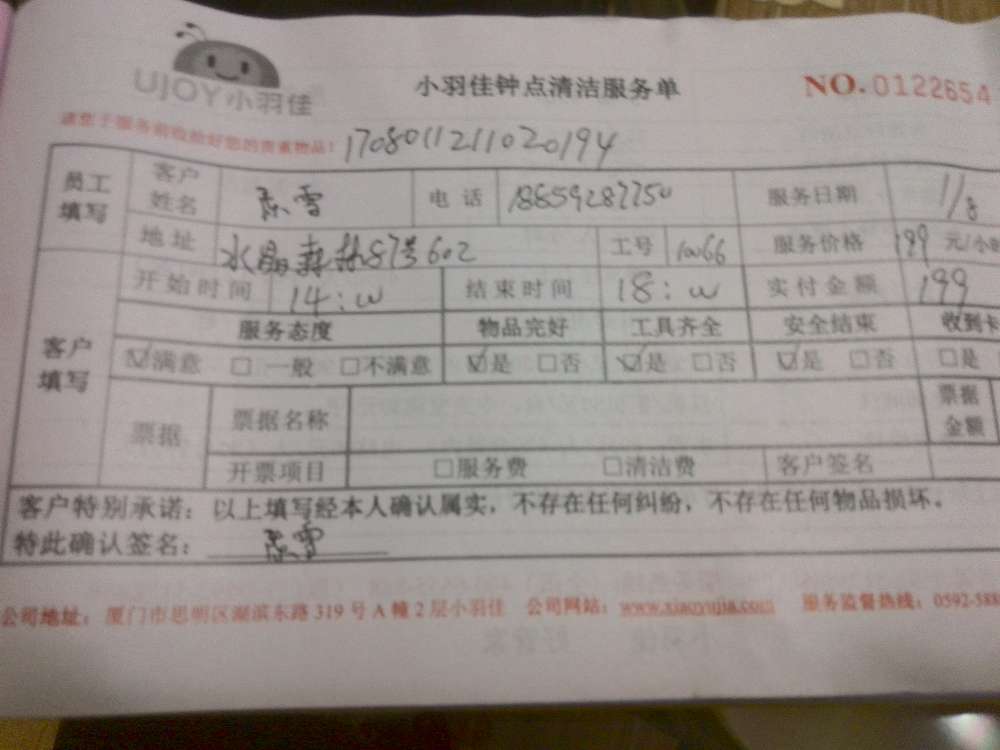 UJOY小羽佳
小羽佳钟点清洁服务单
NO. 0122654
请您于服务前收拾好您的贵重物品!
1708011211020194
员工填写 客户姓名 雪 电话 18659287750 服务日期 1/8
地址 水晶森林87号602 工号 服务价格 199 元/小时
客户填写 开始时间 14: 结束时间 18: 实付金额 199
服务态度 物品完好 工具齐全 安全结束 收到卡
☑满意 □一般 □不满意 ☑是 □否 ☑是 □否 ☑是 □否 □是
票据 票据名称 票据金额
开票项目 □服务费 □清洁费 客户签名
客户特别承诺：以上填写经本人确认属实，不存在任何纠纷，不存在任何物品损坏。
特此确认签名： 雪
公司地址：厦门市思明区湖滨东路319号A幢2层小羽佳 公司网站：www.xiaoyujia.com 服务监督热线：0592-588